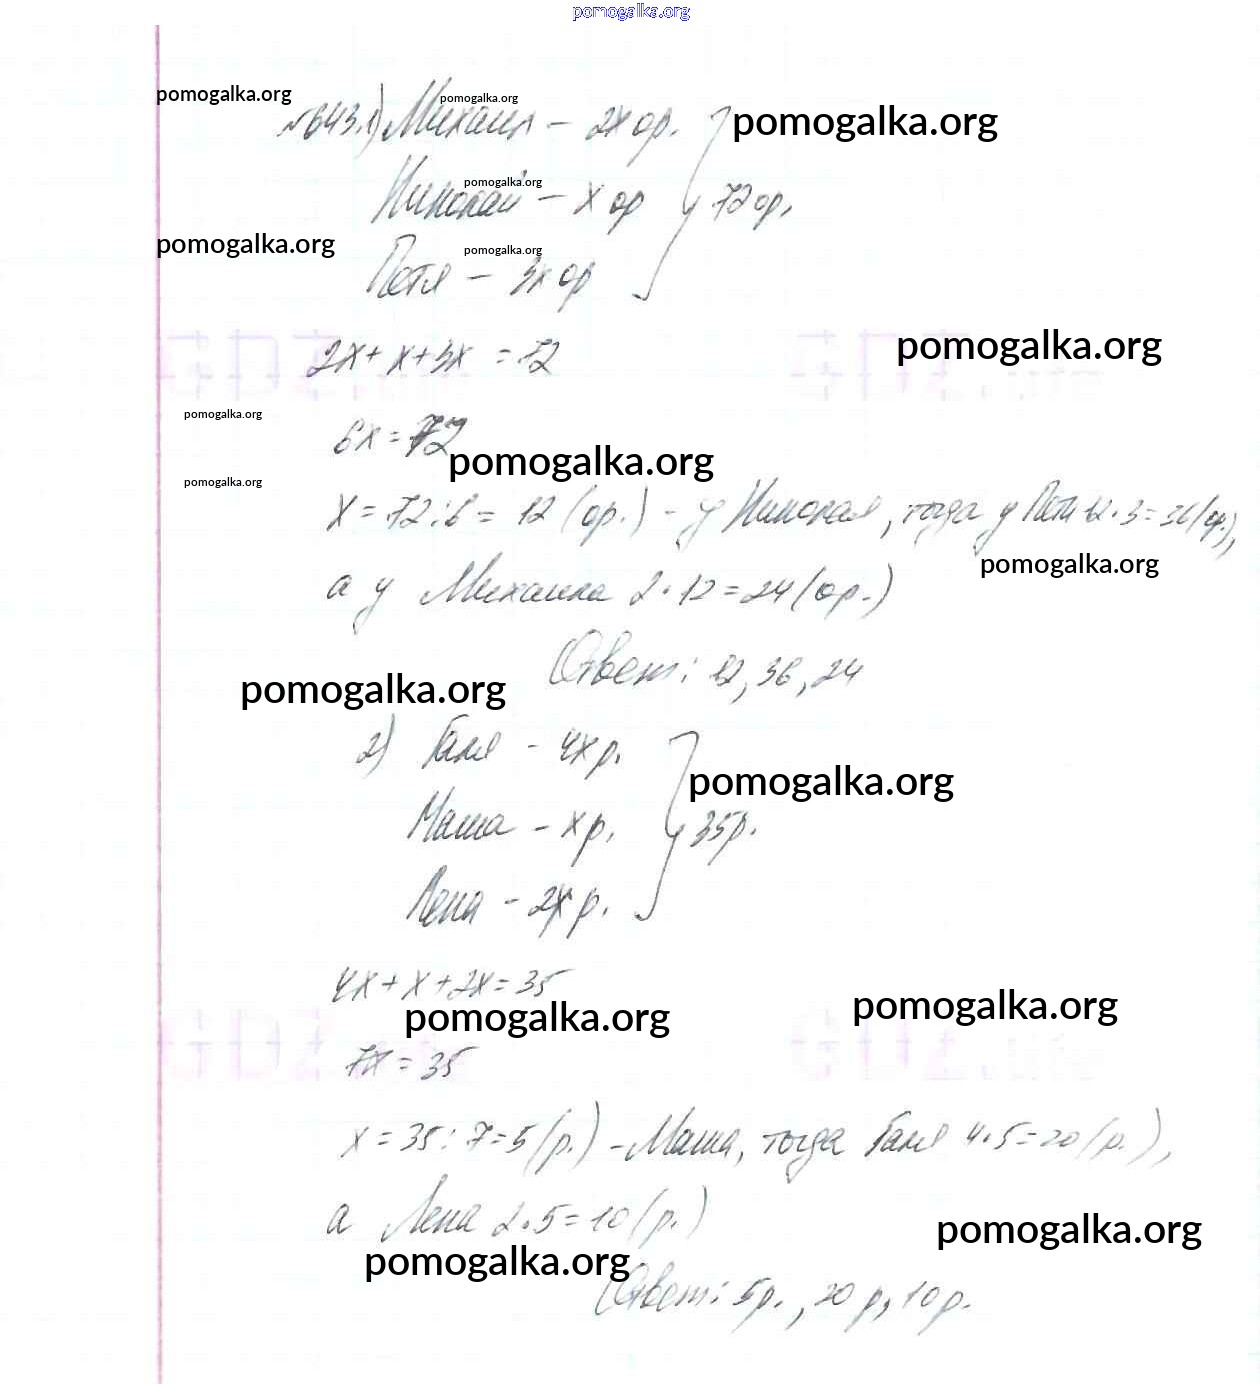 pomogalka.org
pomogalka.org
pomogalka.org
№643.1) Михаил – 2х ор.
pomogalka.org
pomogalka.org
Николай – х ор } 72 ор.
pomogalka.org
pomogalka.org
Петя – 3х ор
2х + х + 3х = 72
pomogalka.org
pomogalka.org
6х = 72
pomogalka.org
pomogalka.org
х = 72 : 6 = 12 (ор.) – у Николая, тогда у Пети 12 · 3 = 36 (ор.),
pomogalka.org
а у Михаила 2 · 12 = 24 (ор.)
Ответ: 12, 36, 24
pomogalka.org
2) Галя – 4х р.
pomogalka.org
Маша – х р. } 35 р.
Лена – 2х р.
4х + х + 2х = 35
pomogalka.org
pomogalka.org
7х = 35
х = 35 : 7 = 5 (р.) – Маша, тогда Галя 4 · 5 = 20 (р.),
а Лена 2 · 5 = 10 (р.)
pomogalka.org
pomogalka.org
Ответ: 5 р., 20 р, 10 р.